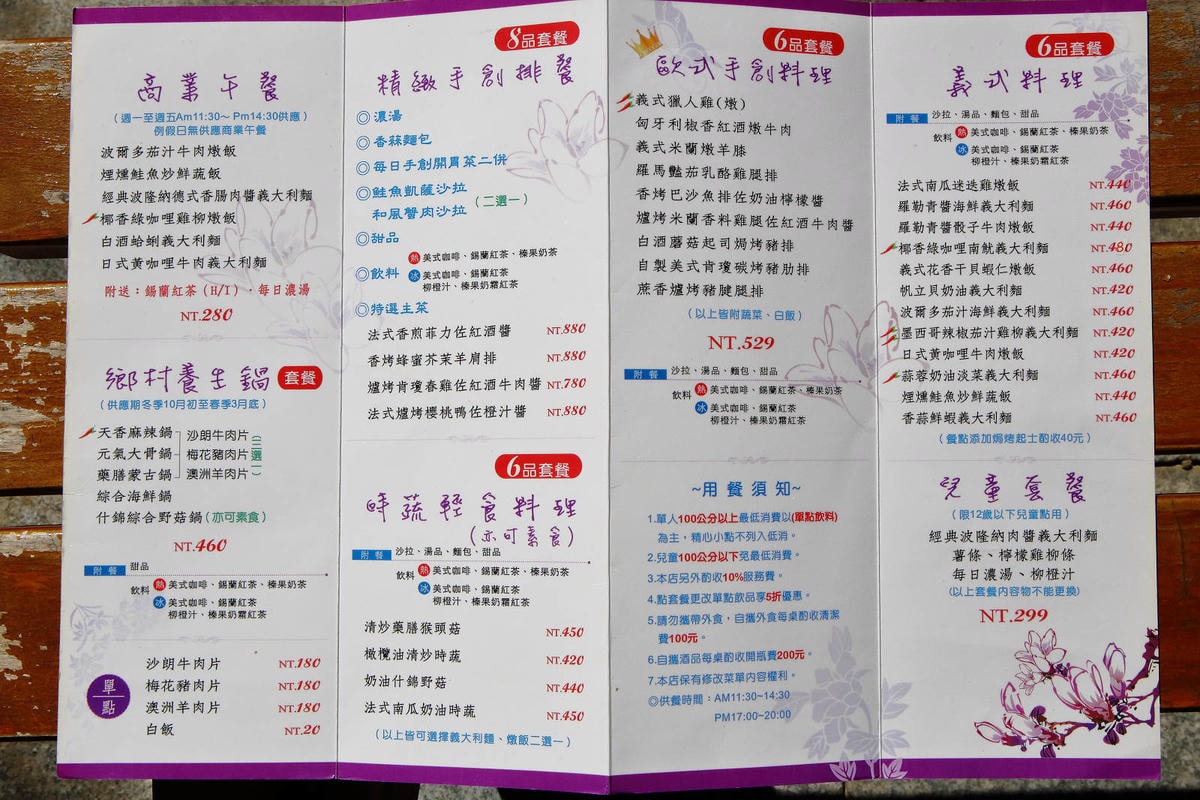 商業午餐
(週一至週五Am11:30~Pm14:30供應)
例假日無供應商業午餐
波爾多茄汁牛肉燉飯
煙燻鮭魚炒鮮蔬飯
經典波隆納德式香腸肉醬義大利麵
椰香綠咖哩雞柳燉飯
白酒蛤蜊義大利麵
日式黃咖哩牛肉義大利麵
附送：錫蘭紅茶(H/I)．每日濃湯
NT.280
鄉村養生鍋 套餐
(供應期冬季10月初至春季3月底)
天香麻辣鍋 沙朗牛肉片
元氣大骨鍋 梅花豬肉片
藥膳蒙古鍋 澳洲羊肉片
(三選一)
綜合海鮮鍋
什錦綜合野菇鍋(亦可素食)
NT.460
附餐 甜品
飲料 熱 美式咖啡、錫蘭紅茶、榛果奶茶
冰 美式咖啡、錫蘭紅茶
柳橙汁、榛果奶霜紅茶
單點
沙朗牛肉片 NT.180
梅花豬肉片 NT.180
澳洲羊肉片 NT.180
白飯 NT.20
8品套餐
精緻手創排餐
◎濃湯
◎香蒜麵包
◎每日手創開胃菜二併
◎鮭魚凱薩沙拉
和風蟹肉沙拉 (二選一)
◎甜品
◎飲料 熱 美式咖啡、錫蘭紅茶、榛果奶茶
冰 美式咖啡、錫蘭紅茶
柳橙汁、榛果奶霜紅茶
◎特選主菜
法式香煎菲力佐紅酒醬 NT.880
香烤蜂蜜芥茉羊肩排 NT.880
爐烤肯瓊春雞佐紅酒牛肉醬 NT.780
法式爐烤櫻桃鴨佐橙汁醬 NT.880
6品套餐
時蔬輕食料理
(亦可素食)
附餐 沙拉、湯品、麵包、甜品
飲料 熱 美式咖啡、錫蘭紅茶、榛果奶茶
冰 美式咖啡、錫蘭紅茶
柳橙汁、榛果奶霜紅茶
清炒藥膳猴頭菇 NT.450
橄欖油清炒時蔬 NT.420
奶油什錦野菇 NT.440
法式南瓜奶油時蔬 NT.450
(以上皆可選擇義大利麵、燉飯二選一)
6品套餐
歐式手創料理
義式獵人雞(燉)
匈牙利椒香紅酒燉牛肉
義式米蘭燉羊膝
羅馬豔茄乳酪雞腿排
香烤巴沙魚排佐奶油檸檬醬
爐烤米蘭香料雞腿佐紅酒牛肉醬
白酒蘑菇起司焗烤豬排
自製美式肯瓊碳烤豬肋排
蔗香爐烤豬腱腿排
(以上皆附蔬菜、白飯)
NT.529
附餐 沙拉、湯品、麵包、甜品
飲料 熱 美式咖啡、錫蘭紅茶、榛果奶茶
冰 美式咖啡、錫蘭紅茶
柳橙汁、榛果奶霜紅茶
~用餐須知~
1.單人100公分以上最低消費以(單點飲料)
為主，精心小點不列入低消。
2.兒童100公分以下免最低消費。
3.本店另外酌收10%服務費。
4.點套餐更改單點飲品享5折優惠。
5.請勿攜帶外食，自攜外食每桌酌收清潔
費100元。
6.自攜酒品每桌酌收開瓶費200元。
7.本店保有修改菜單內容權利。
◎供餐時間：AM11:30~14:30
PM17:00~20:00
6品套餐
義式料理
附餐 沙拉、湯品、麵包、甜品
飲料 熱 美式咖啡、錫蘭紅茶、榛果奶茶
冰 美式咖啡、錫蘭紅茶
柳橙汁、榛果奶霜紅茶
法式南瓜迷迭雞燉飯 NT.440
羅勒青醬海鮮義大利麵 NT.460
羅勒青醬骰子牛肉燉飯 NT.440
椰香綠咖哩南魷義大利麵 NT.480
義式花香干貝蝦仁燉飯 NT.460
帆立貝奶油義大利麵 NT.420
波爾多茄汁海鮮義大利麵 NT.460
墨西哥辣椒茄汁雞柳義大利麵 NT.420
日式黃咖哩牛肉燉飯 NT.420
蒜蓉奶油淡菜義大利麵 NT.460
煙燻鮭魚炒鮮蔬飯 NT.440
香蒜鮮蝦義大利麵 NT.460
(餐點添加焗烤起士酌收40元)
兒童套餐
(限12歲以下兒童點用)
經典波隆納肉醬義大利麵
薯條、檸檬雞柳條
每日濃湯、柳橙汁
(以上套餐內容物不能更換)
NT.299